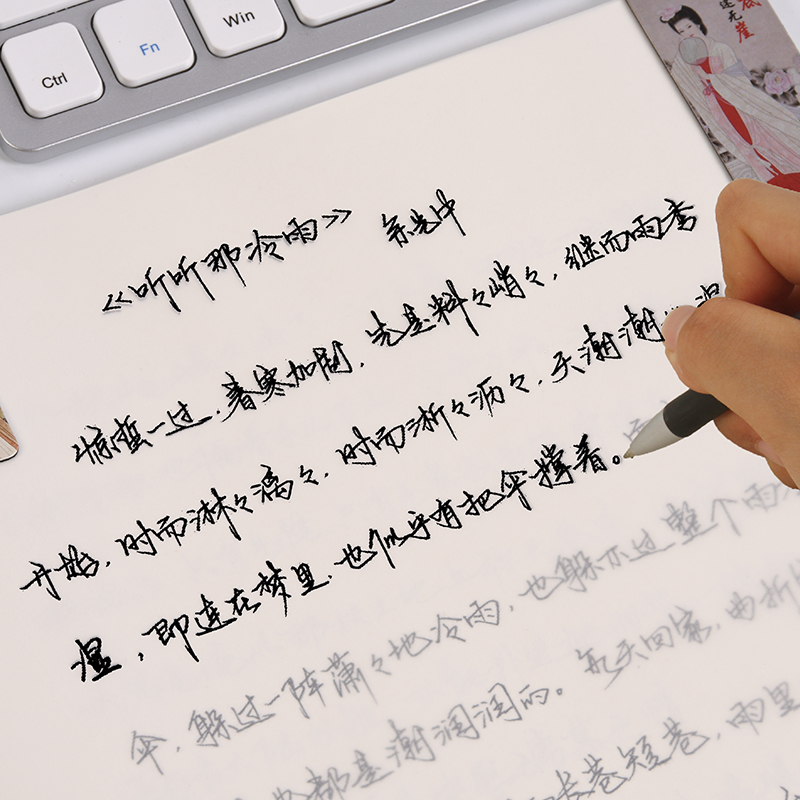 Ctrl
Fn
Win
底
迷无崖
《听听那冷雨》 余光中
惊蛰一过，春寒加剧，先是料々峭々，继而雨季
开始，时而淋々漓々，时而淅々沥々，天潮潮地湿
湿，即连在梦里，也似乎有把伞撑着。而
伞，躲过一阵潇々地冷雨，也躲不过整个雨
都是潮润润的。每天回家，曲折
长巷短巷，雨里